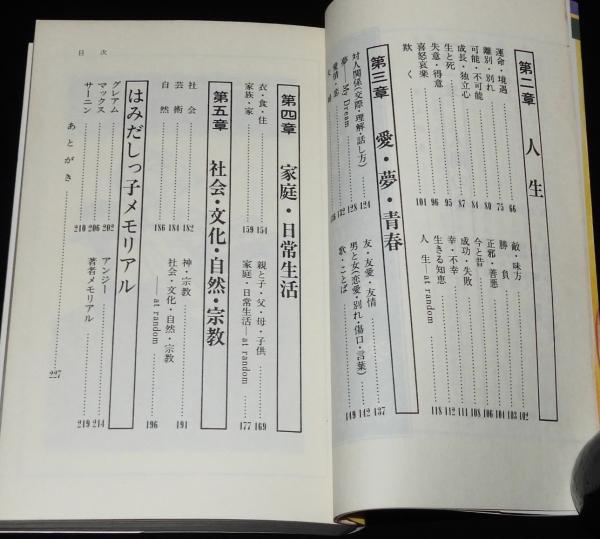 第二章 人生
運命・境遇……66
離別・別れ……75
可能・不可能……80
成長・独立心……84
生と死……87
失意・得意……95
喜怒哀楽……96
欺く……101
敵・味方……102
勝負……103
正邪・善悪……104
今と昔……106
成功・失敗……108
幸・不幸……111
生きる知恵……112
人生 at random……118
第三章 愛・夢・青春
対人関係(交際・理解・話し方)……124
夢 — My Dream……128
132
友・友愛・友情……137
男と女(恋愛・別れ・傷口・言葉)……142
歌・ことば……149
第四章 家庭・日常生活
衣・食・住……154
家族・家……159
親と子・父・母・子供……169
家庭・日常生活—at random……177
第五章 社会・文化・自然・宗教
社会……182
芸術……184
自然……186
神・宗教……191
社会・文化・自然・宗教
—at random……196
はみだしっ子メモリアル
グレアム……202
マックス……206
サーニン……210
アンジー……214
著者メモリアル……219
あとがき……227
目次